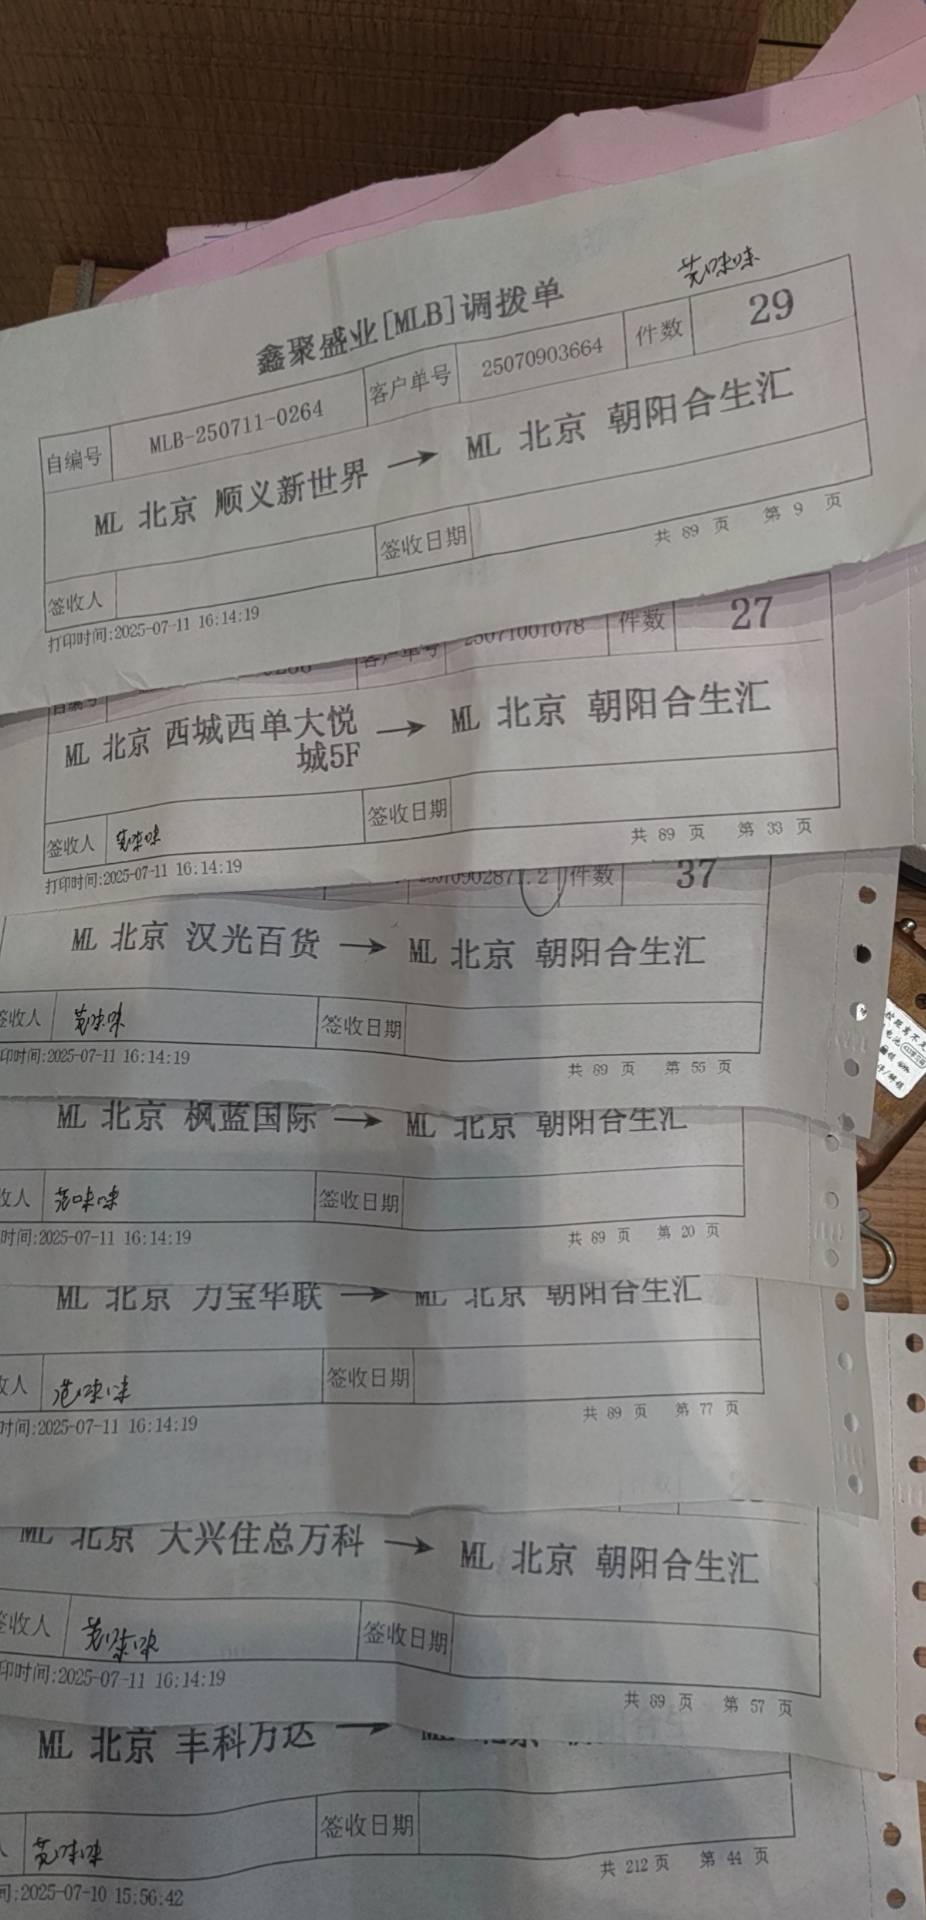 鑫聚盛业[MLB]调拨单
自编号 MLB-250711-0264 客户单号 25070903664 件数 29
ML 北京 顺义新世界 → ML 北京 朝阳合生汇
签收人 签收日期
共 89 页 第 9 页
打印时间:2025-07-11 16:14:19
自编号 客户单号 25071001078 件数 27
ML 北京 西城西单大悦城5F → ML 北京 朝阳合生汇
签收人 签收日期
共 89 页 第 33 页
打印时间:2025-07-11 16:14:19
件数 37
ML 北京 汉光百货 → ML 北京 朝阳合生汇
签收人 签收日期
印时间:2025-07-11 16:14:19
共 89 页 第 55 页
ML 北京 枫蓝国际 → ML 北京 朝阳合生汇
收人 签收日期
时间:2025-07-11 16:14:19
共 89 页 第 20 页
ML 北京 力宝华联 → ML 北京 朝阳合生汇
收人 签收日期
时间:2025-07-11 16:14:19
共 89 页 第 77 页
ML 北京 大兴住总万科 → ML 北京 朝阳合生汇
签收人 签收日期
印时间:2025-07-11 16:14:19
共 89 页 第 57 页
ML 北京 丰科万达 → ML 北京
人 签收日期
共 212 页 第 44 页
间:2025-07-10 15:56:42